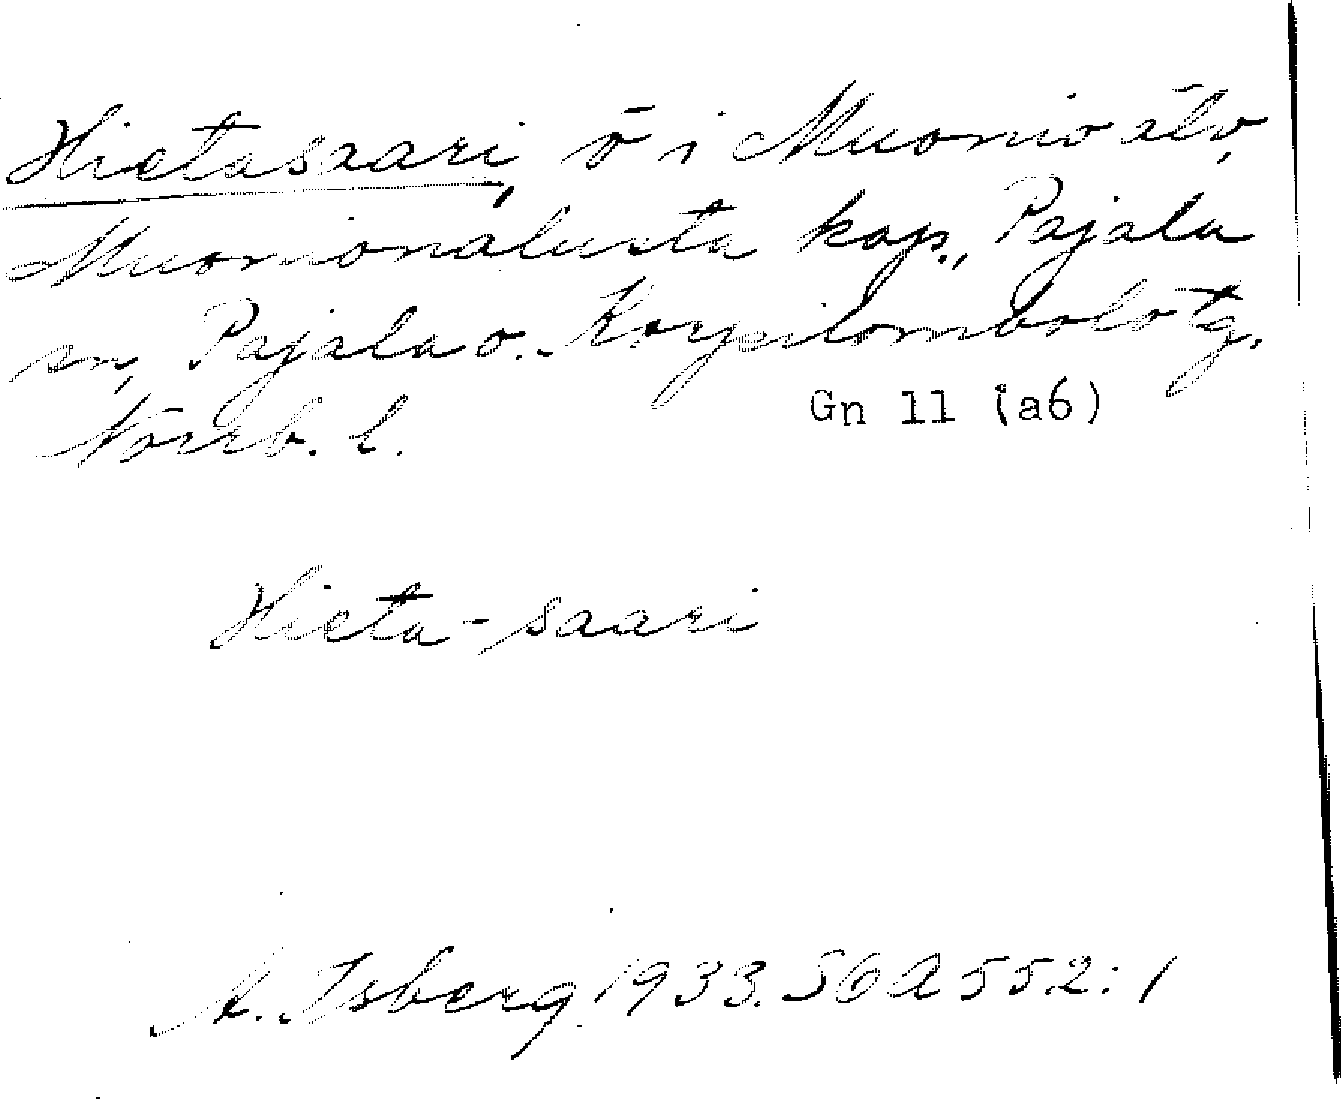 Hietasaari, ö i Muonio älv,
Muonionalusta kap., Pajala
sn, Pajala o. Korpilombolo tg.
Norrb. l.
Gn 11 (a6)
Hieta-saari
A. Isberg 1933. SOA 552:1